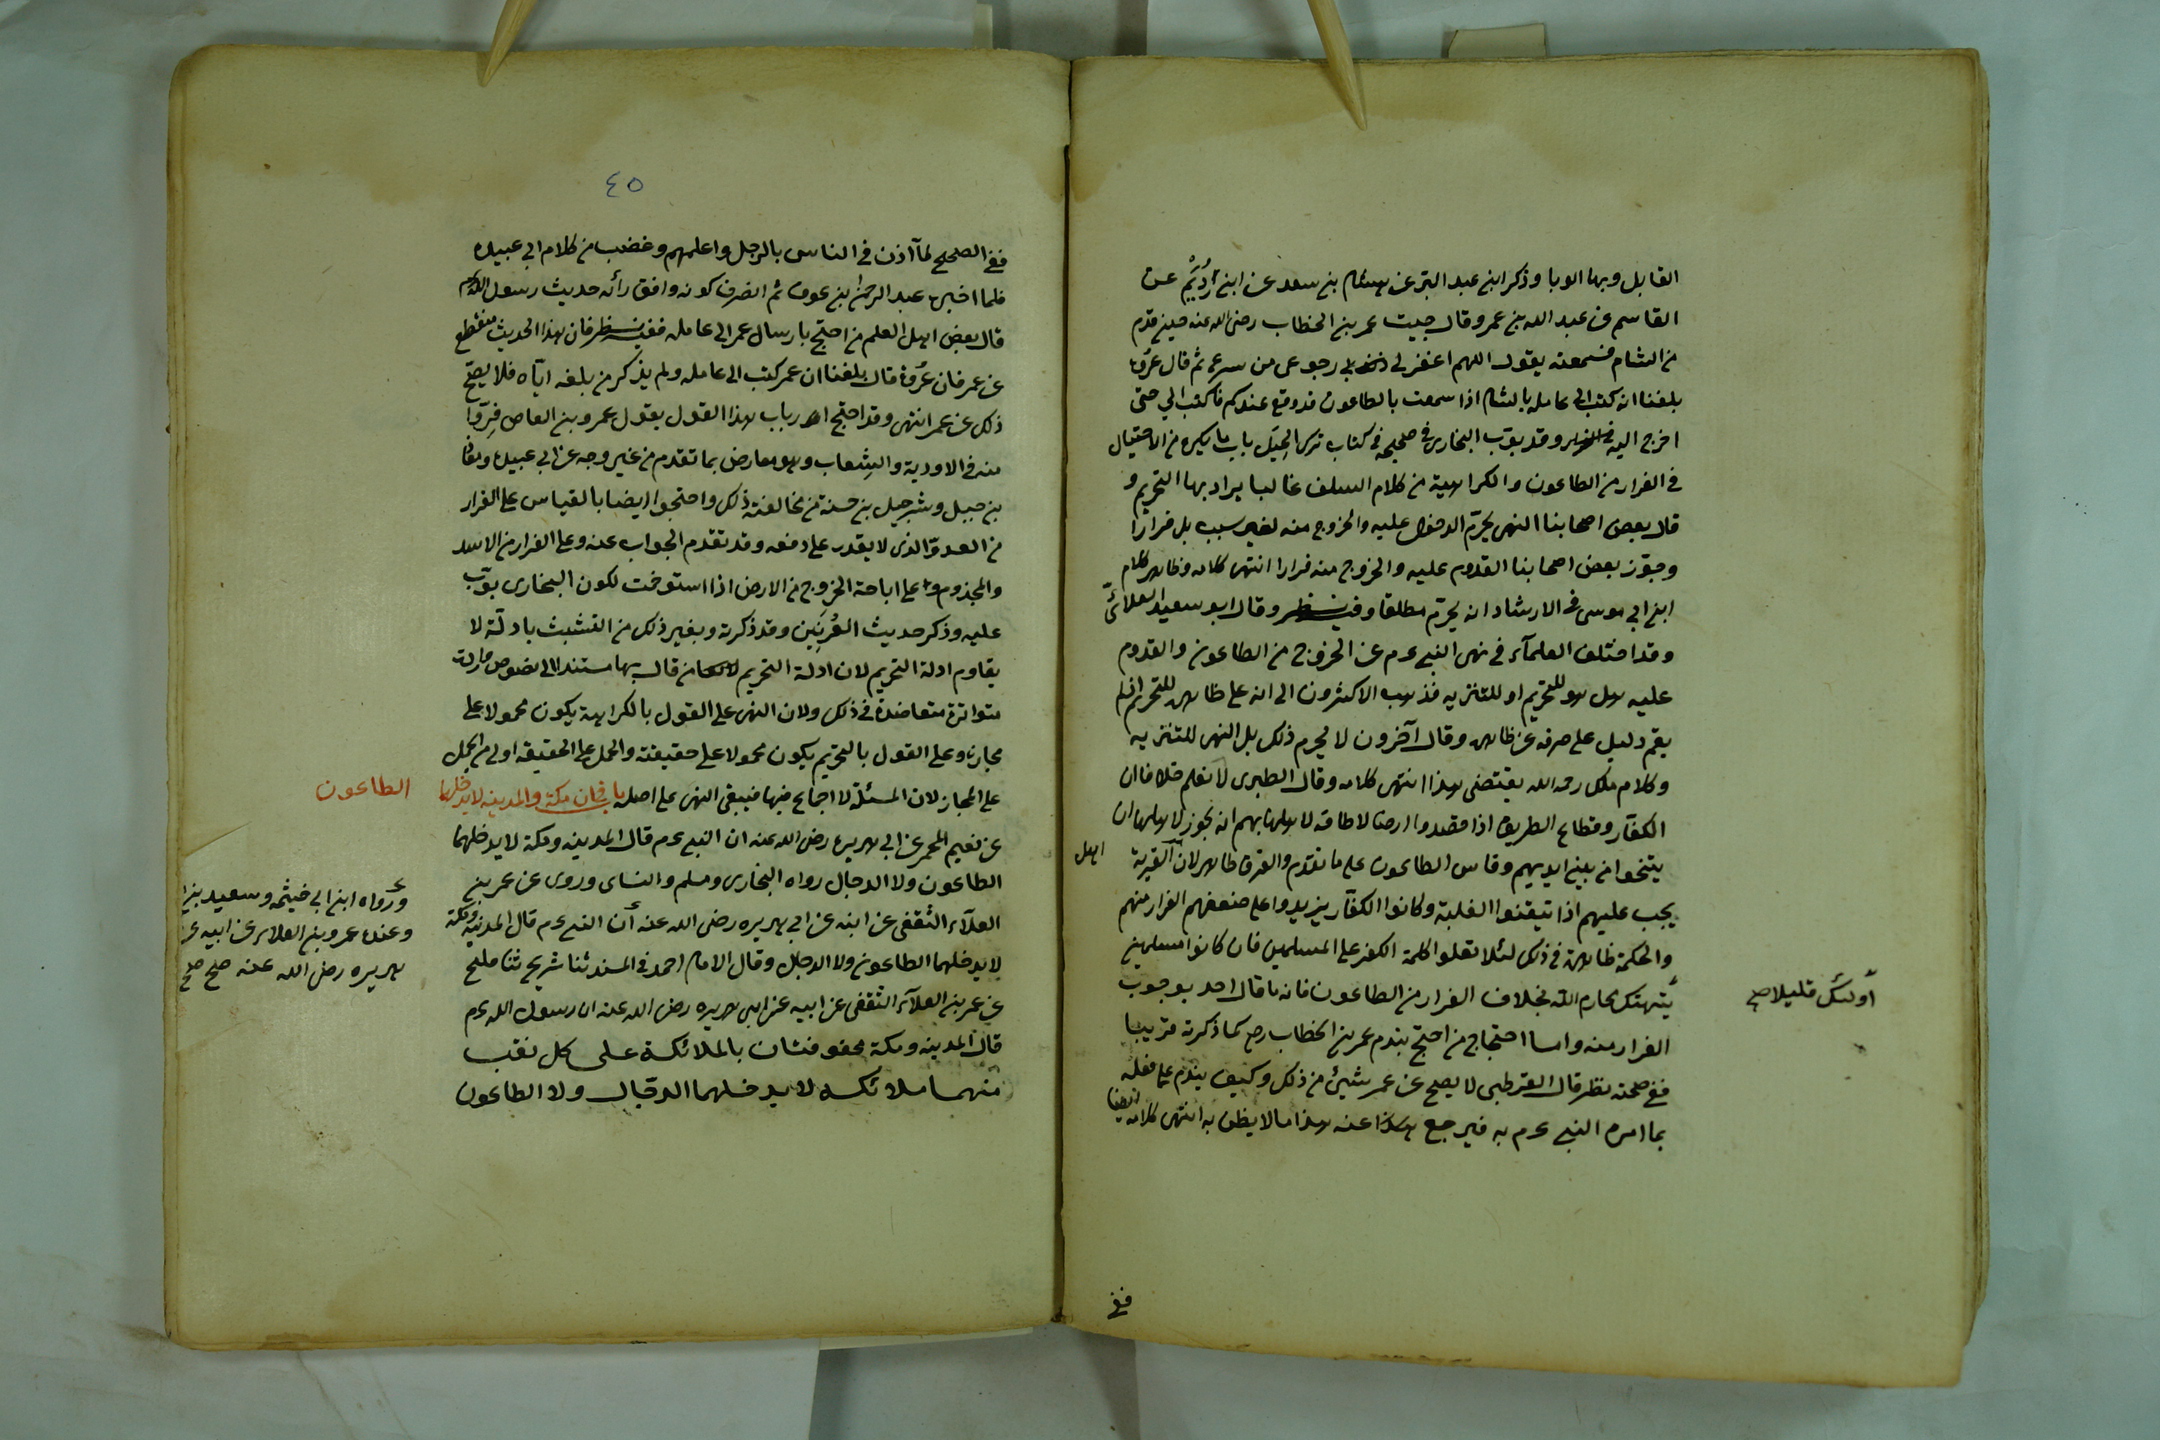 القابل وبها الوبا وذكر ابن عبد البر عن هشام بن سعد عن ابن رُوَيْم عن
القاسم عن عبد الله بن عمر وقال جيت عمر بن الخطاب رضى الله عنه حين قدم
من الشام فسمعته يقول اللهم اغفر لى رجوعى من سرع ثم قال عروة
بلغنا انه كتب الى عامله بالشام اذا سمعت بالطاعون قد وقع عندكم فاكتب الي حتى
اخرج اليه وقد بوّب البخارى فى صحيحه فى كتاب ترك الحِيَل باب ما يكره من الاحتيال
فى الفرار من الطاعون والكراهية من كلام السلف غالبا يراد بها التحريم و
قال بعض اصحابنا النهى يحرّم الدخول عليه والخروج منه لغير سبب بل فرارا
وجوّز بعض اصحابنا القدوم عليه والخروج منه فرارا انتهى كلامه وظاهر كلام
ابن ابى موسى فى الارشاد انه يحرّم مطلقا وفيه نظر وقال ابو سعيد العلائىّ
وقد اختلف العلمآء فى نهى النبى عم عن الخروج من الطاعون والقدوم
عليه هل هو للتحريم او للتنزيه فذهب الاكثرون الى انه على ظاهره للتحريم اذ لم
يقم دليل على صرفه عن ظاهره وقال آخرون لا يحرم ذلك بل النهى للتنزيه
وكلام ملك رحمه الله يقتضى هذا انتهى كلامه وقال الطبرى لا نعلم خلافا ان
الكفّار وقطاع الطريق اذا قصدوا ارضا لا طاقة لاهلها بهم انه يجوز لاهلها ان
يتنحوا من بين ايديهم وقاس الطاعون على ما تقدم والفرق ظاهر لان القرية
اهل
يجب عليهم اذا تيقنوا الغلبة وكانوا الكفّار يزيدوا على ضعفهم الفرار منهم
والحكمة ظاهرة فى ذلك لئلا تعلوا كلمة الكفر على المسلمين فان كانوا مسلمين
يُنتهك محارم الله بخلاف الفرار من الطاعون فانه ما قال احد بوجوب
أولئك قليلا صح
الفرار منه واما احتجاج من احتج بندم عمر بن الخطاب رضع كما ذكرته قريبا
ففى صحته نظر قال القرطبى لا يصح عن عمر شيئ من ذلك وكيف يندم على فعله
بما امره النبى عم به فيرجع عنه هذا ما لا يظن به انتهى كلامه ايضا
ففى
٤٥
ففى الصحيح لمآ اذن فى الناس بالرحل واعلمهم وغضب من كلام ابى عبيدة
فلما اخبره عبد الرحمن بن عوف ثم انصرف كونه وافق رأيه حديث رسول الله عم
قال بعض اهل العلم من احتج بارسال عمر الى عامله ففيه نظر فان هذا الحديث منقطع
عن عمر فان عُروة قال بلغنا ان عمر كتب الى عامله ولم يذكر من بلغه ايّاه فلا يصحّ
ذلك عن عمر انتهى وقد احتج ارباب هذا القول بقول عمرو بن العاص فِرّوا
منه فى الاودية والشِعاب وهو معارض بما تقدم من غير وجه عن ابى عبيدة ومعاذ
بن جبل وشرحبيل بن حسنة من مخالفته ذلك واحتجوا ايضا بالقياس على الفرار
من العدوّ الذى لا يقدر على دفعه وقد تقدم الجواب عنه وعلى الفرار من الاسد
والمجذوم وعلى اباحة الخروج من الارض اذا استوخمت لكون البخارى بوّب
عليه وذكر حديث العُرَنِين وقد ذكرته وبغير ذلك من التشبث بادلّة لا
يقاوم ادلة التحريم لان ادلة التحريم من قال بها مستندا الى نصوص صارت
متواترة متعاضدة فى ذلك ولان النهى على القول بالكراهة يكون محمولا على
مجازه وعلى القول بالتحريم يكون محمولا على حقيقته والحمل على الحقيقة اولى من الحمل
على المجاز لان المسئلة لا اجماع فيها فيبقى النهى على اصله باب فى ان مكة والمدينة لا يدخلها
الطاعون
عن نعيم المجمر عن ابى هريرة رضى الله عنه ان النبى عم قال المدينة ومكة لا يدخلهما
الطاعون ولا الدجال رواه البخارى ومسلم والنساى وروى عن عمر بن
ورواه ابن ابى خيثمه وسعيد بن
العلآء الثقفى عن ابيه عن ابى هريره رضى الله عنه أن النبى عم قال المدينة ومكة
وعنده عمرو بن العلاء عن ابيه عن
لا يدخلهما الطاعون ولا الدجال وقال الامام احمد فى المسند ثنا شريح ثنا فليح
هريره رضى الله عنه صح صح
عن عمر بن العلآء الثقفى عن ابيه عن ابى هريره رضى الله عنه ان رسول الله عم
قال المدينه ومكة محفوفتان بالملائكة على كل نقب
منهما ملائكة لا يدخلهما الدجال ولا الطاعون